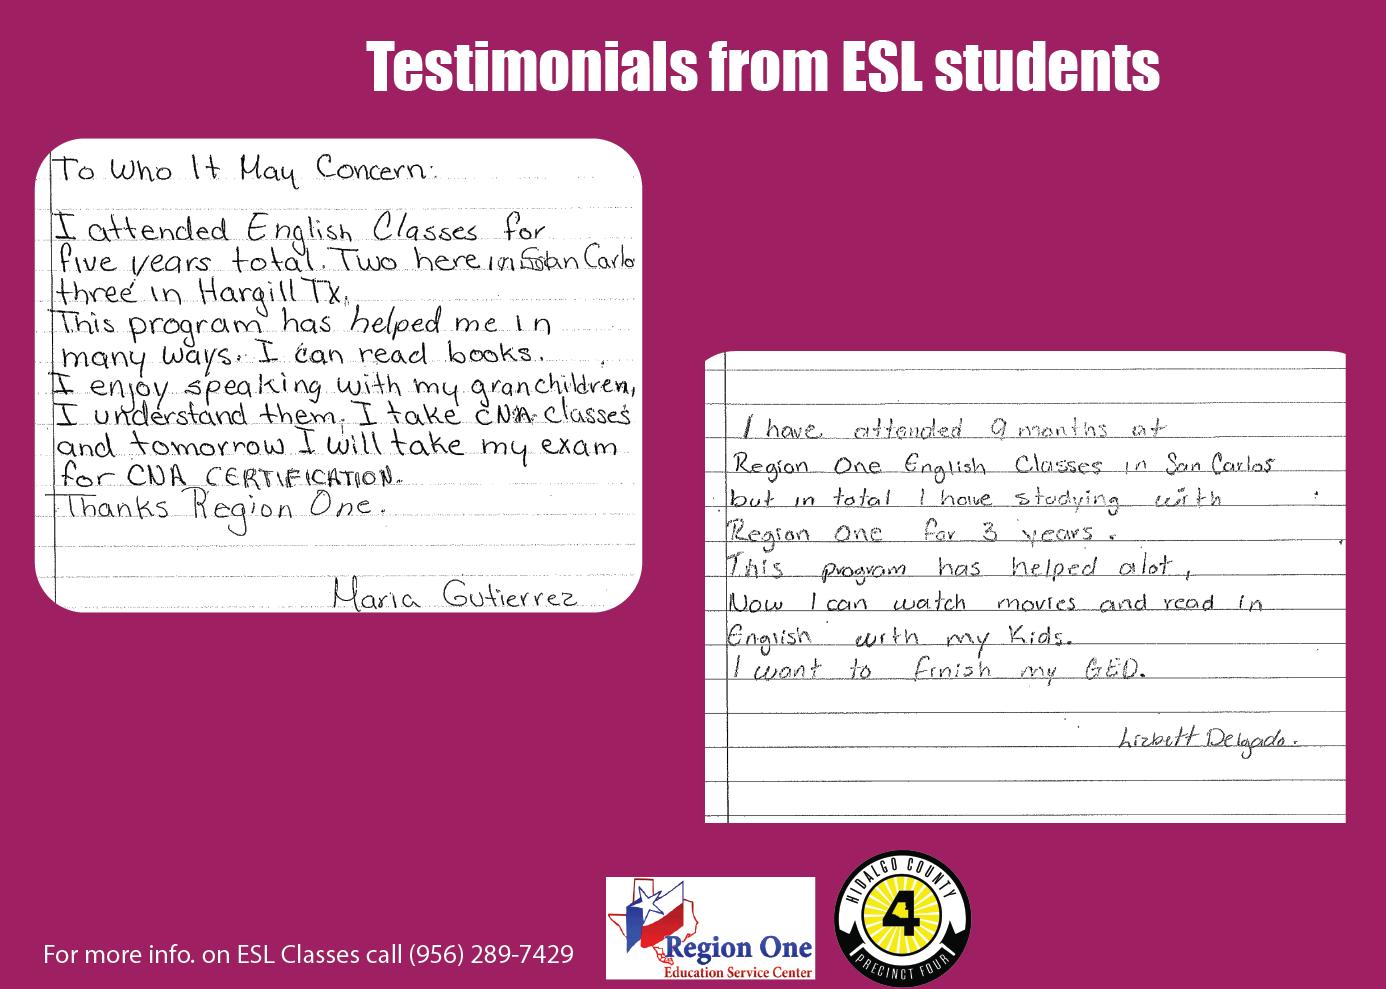 Testimonials from ESL students
To Who It May Concern:
I attended English Classes for
five years total. Two here in San Carlo
three in Hargill Tx.
This program has helped me in
many ways. I can read books.
I enjoy speaking with my granchildren,
I understand them. I take CNA classes
and tomorrow I will take my exam
for CNA CERTIFICATION.
Thanks Region One.
Maria Gutierrez
I have attended 9 months at
Region One English Classes in San Carlos
but in total I have studying with
Region One for 3 years.
This program has helped alot,
Now I can watch movies and read in
English with my Kids.
I want to finish my GED.
Lizbett Delgado.
For more info. on ESL Classes call (956) 289-7429
Region One
Education Service Center
HIDALGO COUNTY
4
PRECINCT FOUR